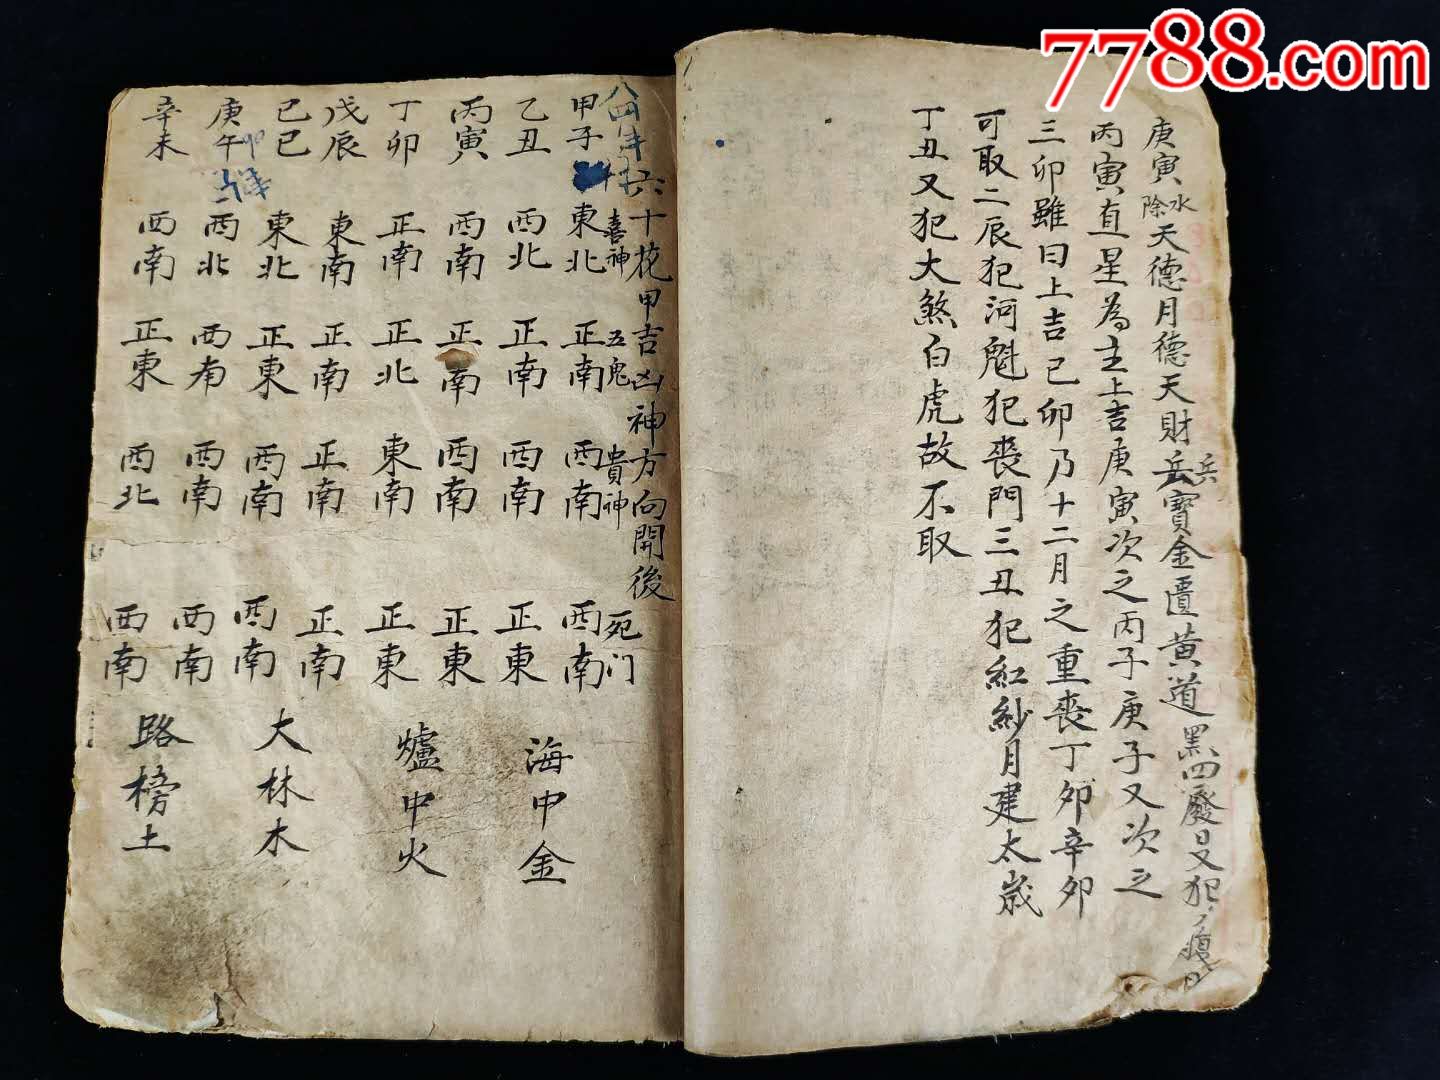 7788.com
庚寅 水除 天德月德天財兵寶金匱黃道黑四廢日又犯
丙寅直星為主上吉庚寅次之丙子庚子又次之
三卯雖曰上吉己卯乃十二月之重喪丁卯辛卯
可取二辰犯河魁犯喪門三丑犯紅紗月建太歲
丁丑又犯大煞白虎故不取
六十花甲吉凶神方向開後
喜神 五鬼 貴神 死门
甲子 東北 正南 西南 西南
乙丑 西北 正南 西南 正東
海中金
丙寅 西南 正南 西南 正東
丁卯 正南 正北 東南 正東
爐中火
戊辰 東南 正南 正南 正南
己巳 東北 正東 西南 西南
大林木
庚午 西北 西南 西南 西南
辛未 西南 正東 西北 西南
路榜土